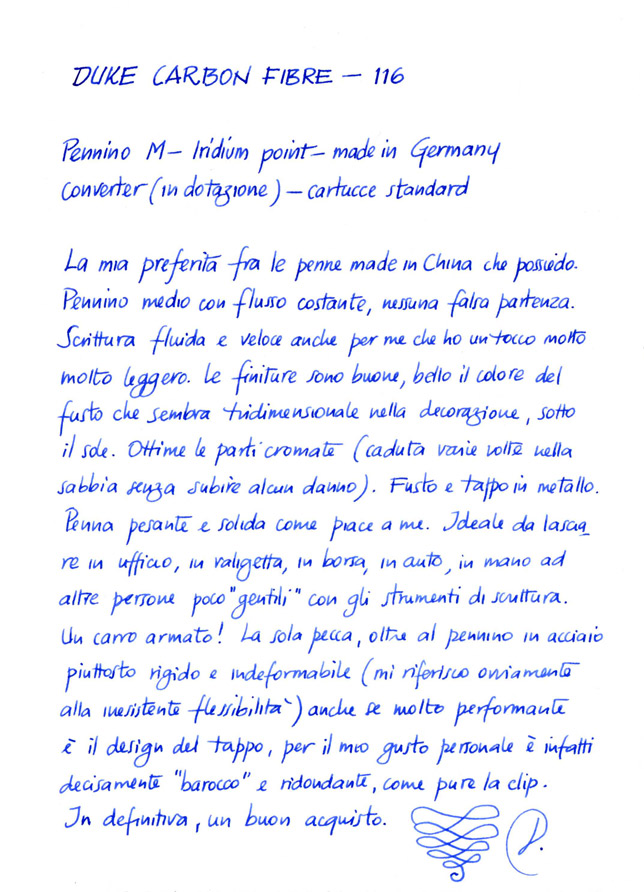 DUKE CARBON FIBRE – 116
Pennino M – Iridium point – made in Germany
Converter (in dotazione) – cartucce standard
La mia preferita fra le penne made in China che possiedo.
Pennino medio con flusso costante, nessuna falsa partenza.
Scrittura fluida e veloce anche per me che ho un tocco molto
molto leggero. Le finiture sono buone, bello il colore del
fusto che sembra tridimensionale nella decorazione, sotto
il sole. Ottime le parti cromate (caduta varie volte nella
sabbia senza subire alcun danno). Fusto e tappo in metallo.
Penna pesante e solida come piace a me. Ideale da lascia_
re in ufficio, in valigetta, in borsa, in auto, in mano ad
altre persone poco "gentili" con gli strumenti di scrittura.
Un carro armato! La sola pecca, oltre al pennino in acciaio
piuttosto rigido e indeformabile (mi riferisco ovviamente
alla inesistente flessibilità) anche se molto performante
è il design del tappo, per il mio gusto personale è infatti
decisamente "barocco" e ridondante, come pure la clip.
In definitiva, un buon acquisto.